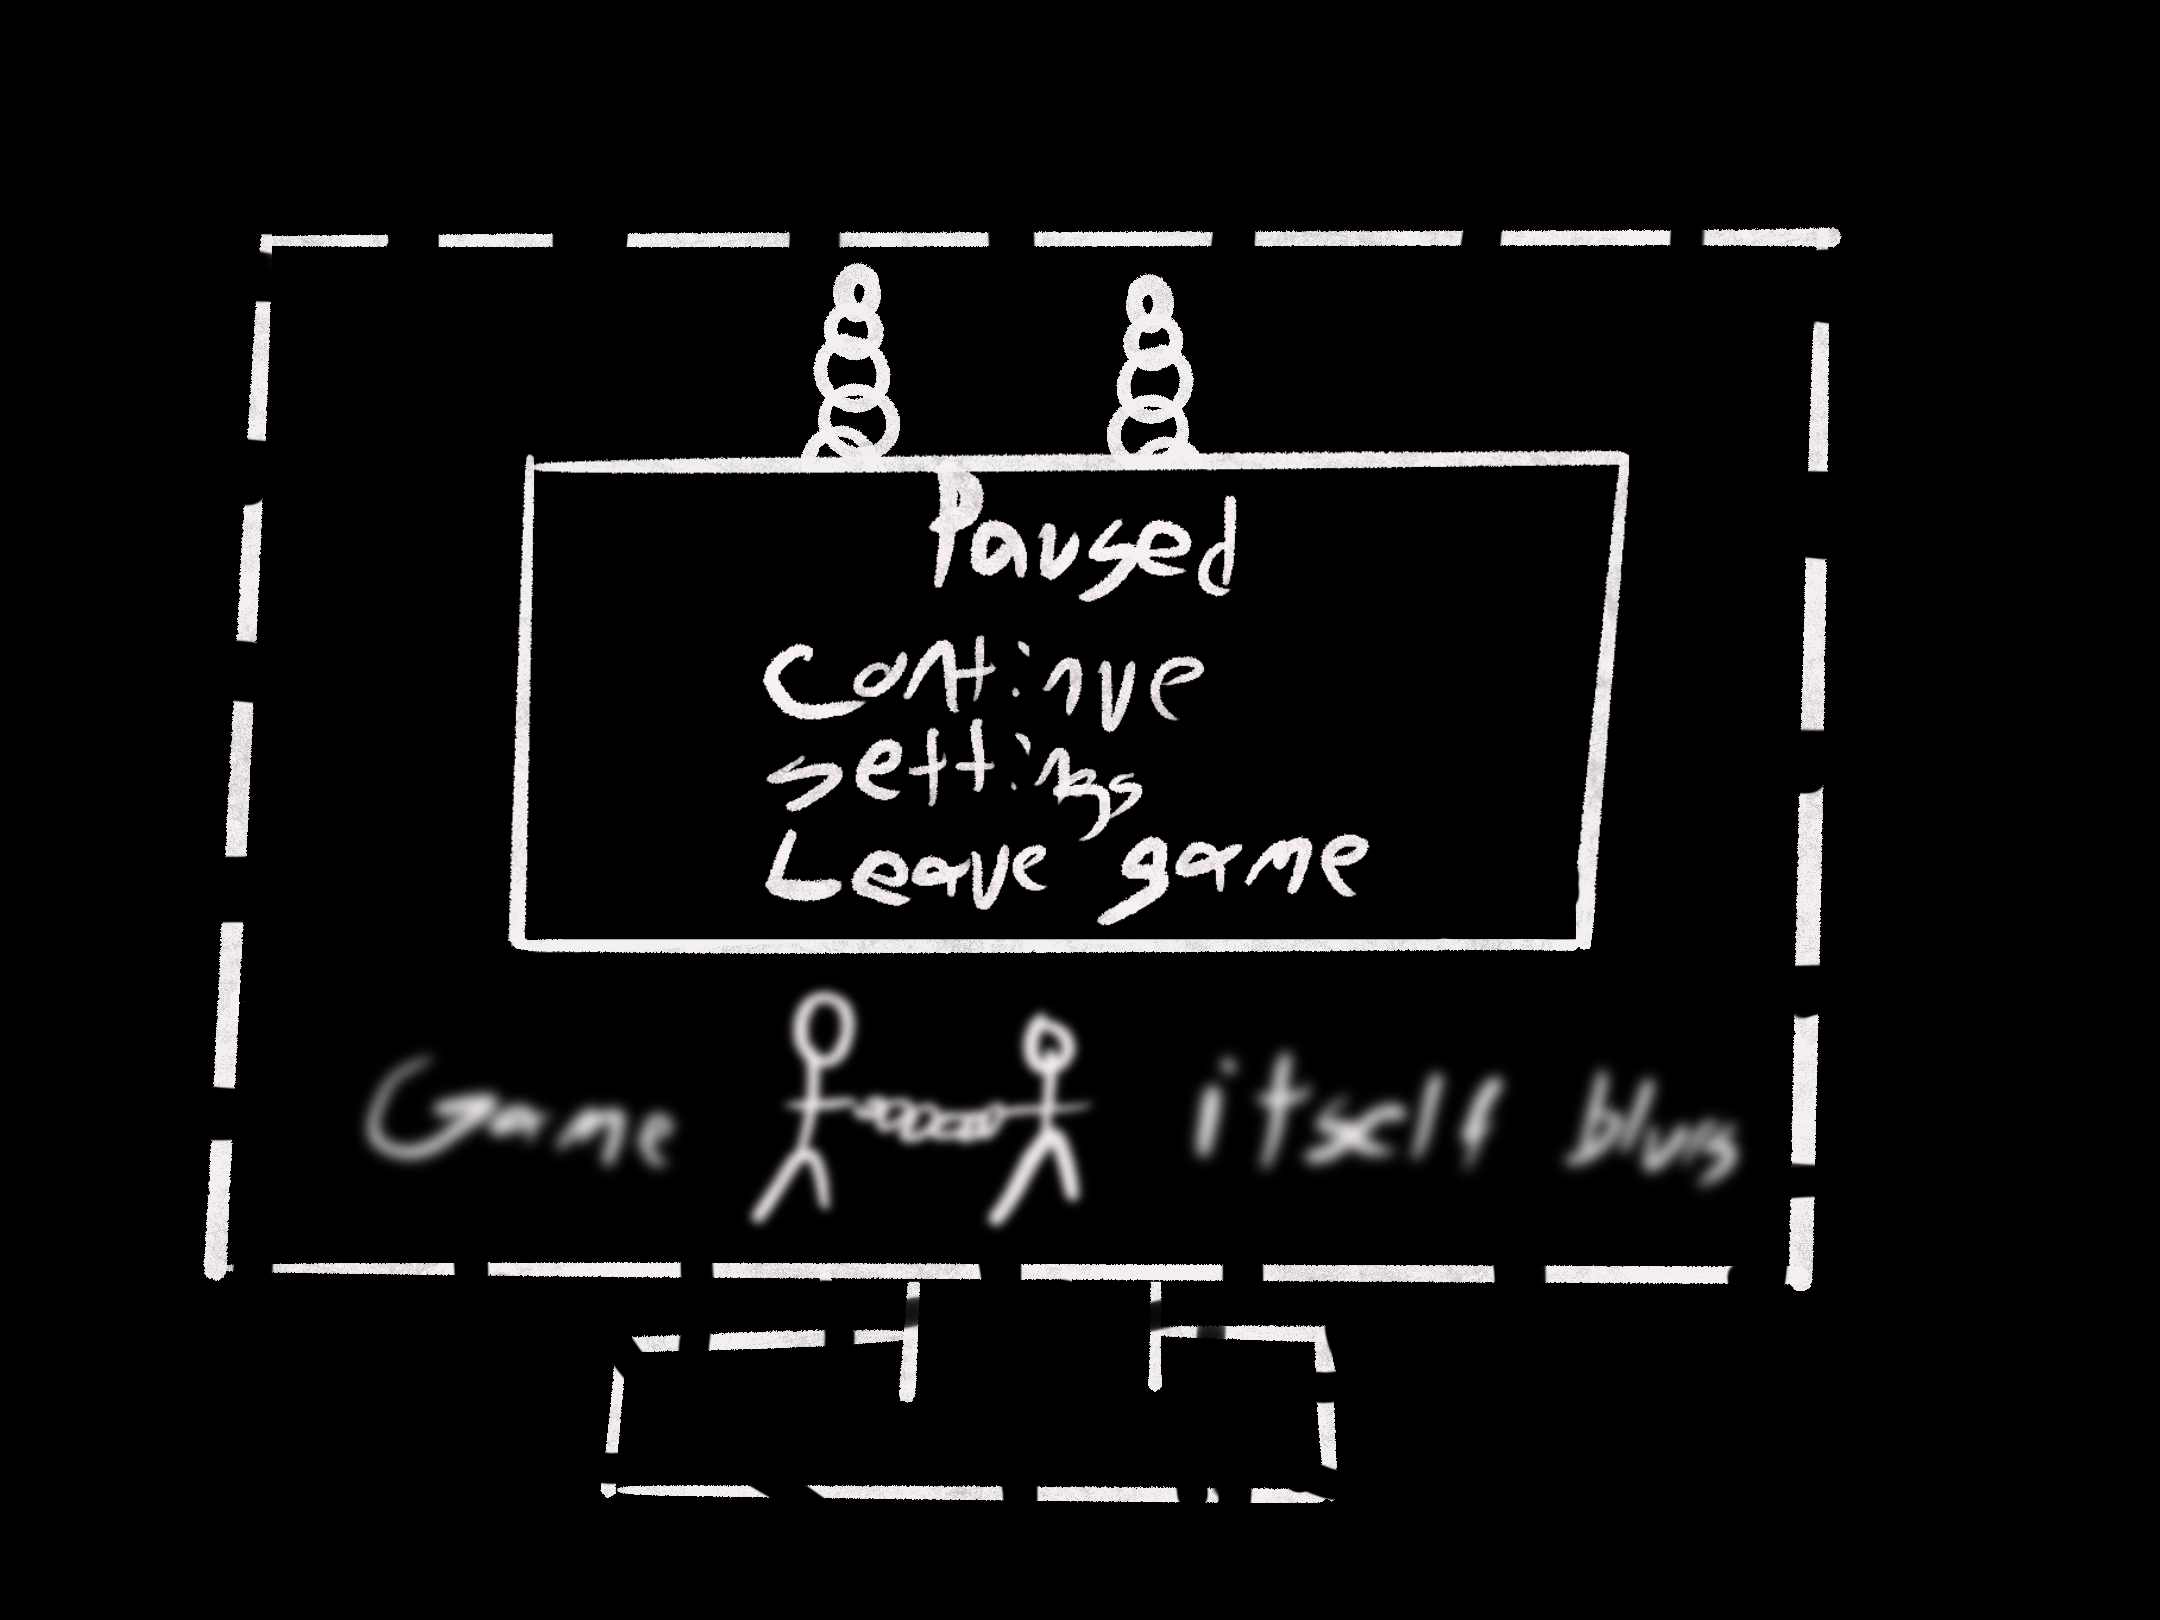 Paused
Continue
settings
Leave game
Game itself blurs